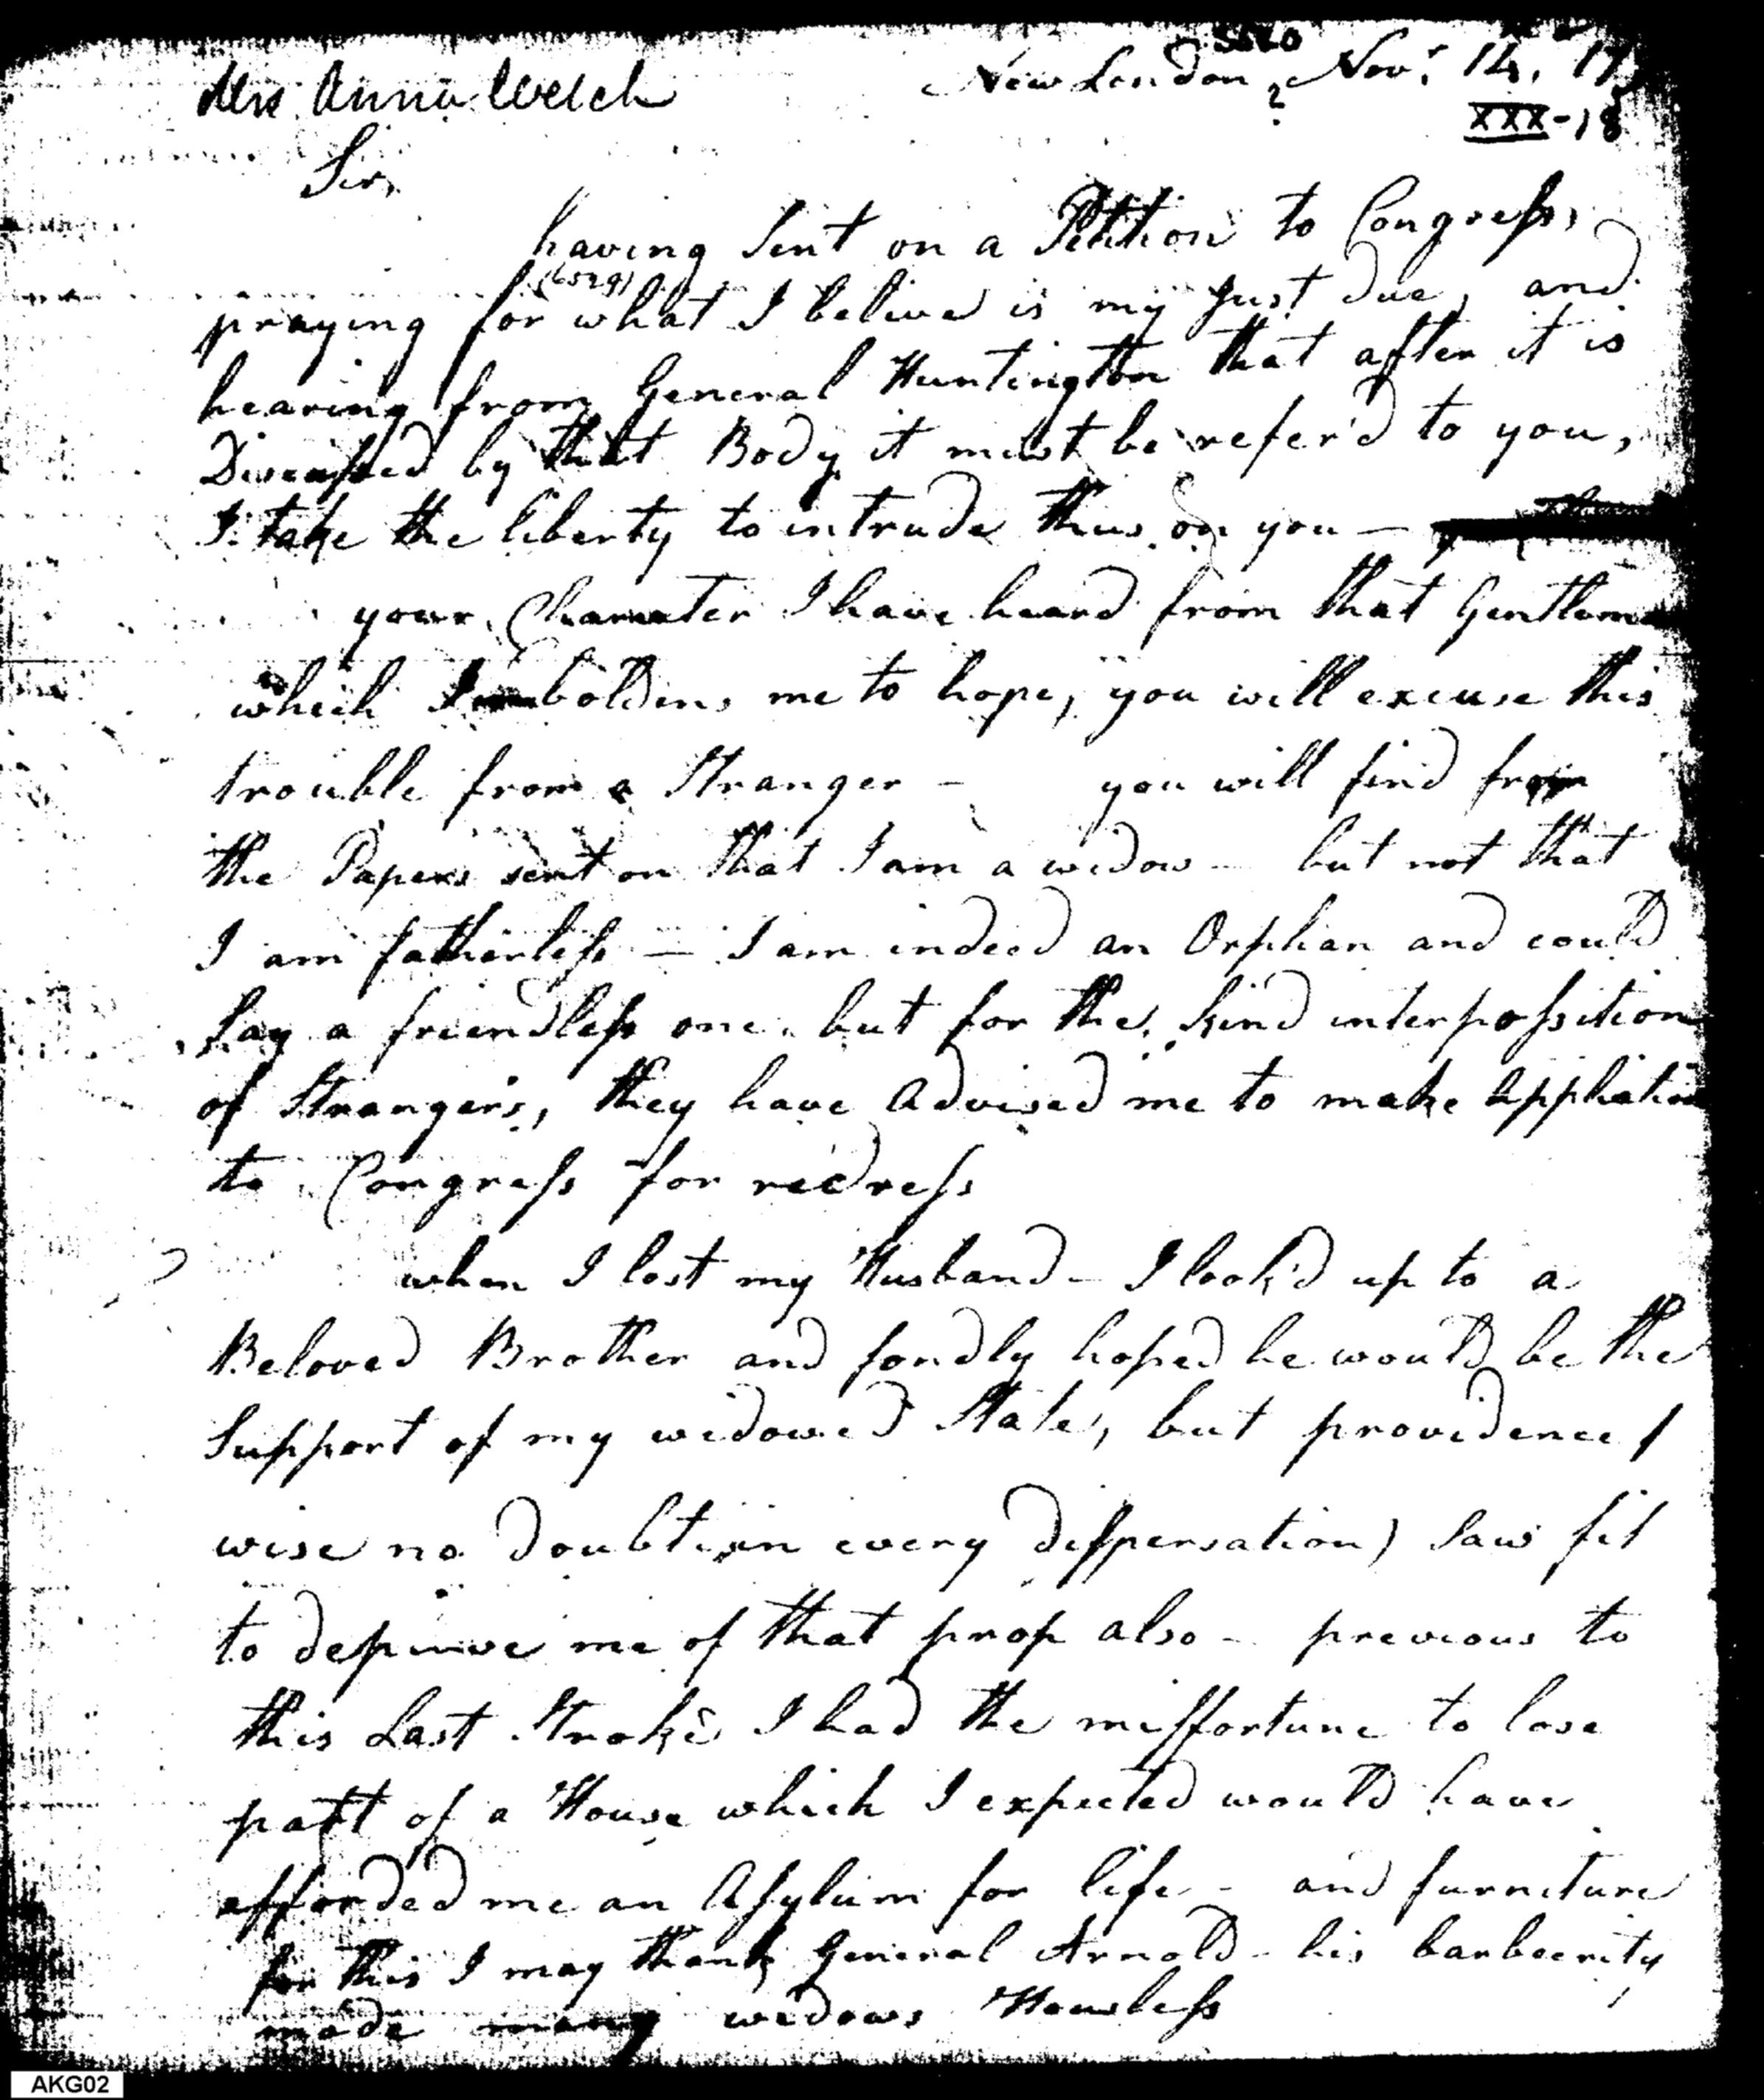 Mrs Anna Welch
New London, Nov.r 14. 17
XXX-18
Sir,
having sent on a Petition to Congress,
(6529)
praying for what I believe is my just due, and
hearing from General Huntington that after it is
Discussed by that Body it must be refer'd to you,
I take the liberty to intrude thus on you —
your Charecter I have heard from that Gentlem
which Imboldens me to hope, you will excuse this
trouble from a Stranger – you will find from
the Papers sent on that I am a widow – but not that
I am fatherless — I am indeed an Orphan and could
Say a friendless one, but for the kind interpossition
of Strangers, they have Advised me to make Application
to Congress for redress
when I lost my Husband – I look'd up to a
Beloved Brother and fondly hoped he would be the
Support of my widowed State, but providence (
wise no doubt in every disspensation) saw fit
to deprive me of that prop also – previous to
this Last Stroke I had the missfortune to lose
part of a House which I expected would have
afforded me an Asylum for life – and furniture
for this I may thank General Arnold – his barbeerity
made many widows Housless
AKG02